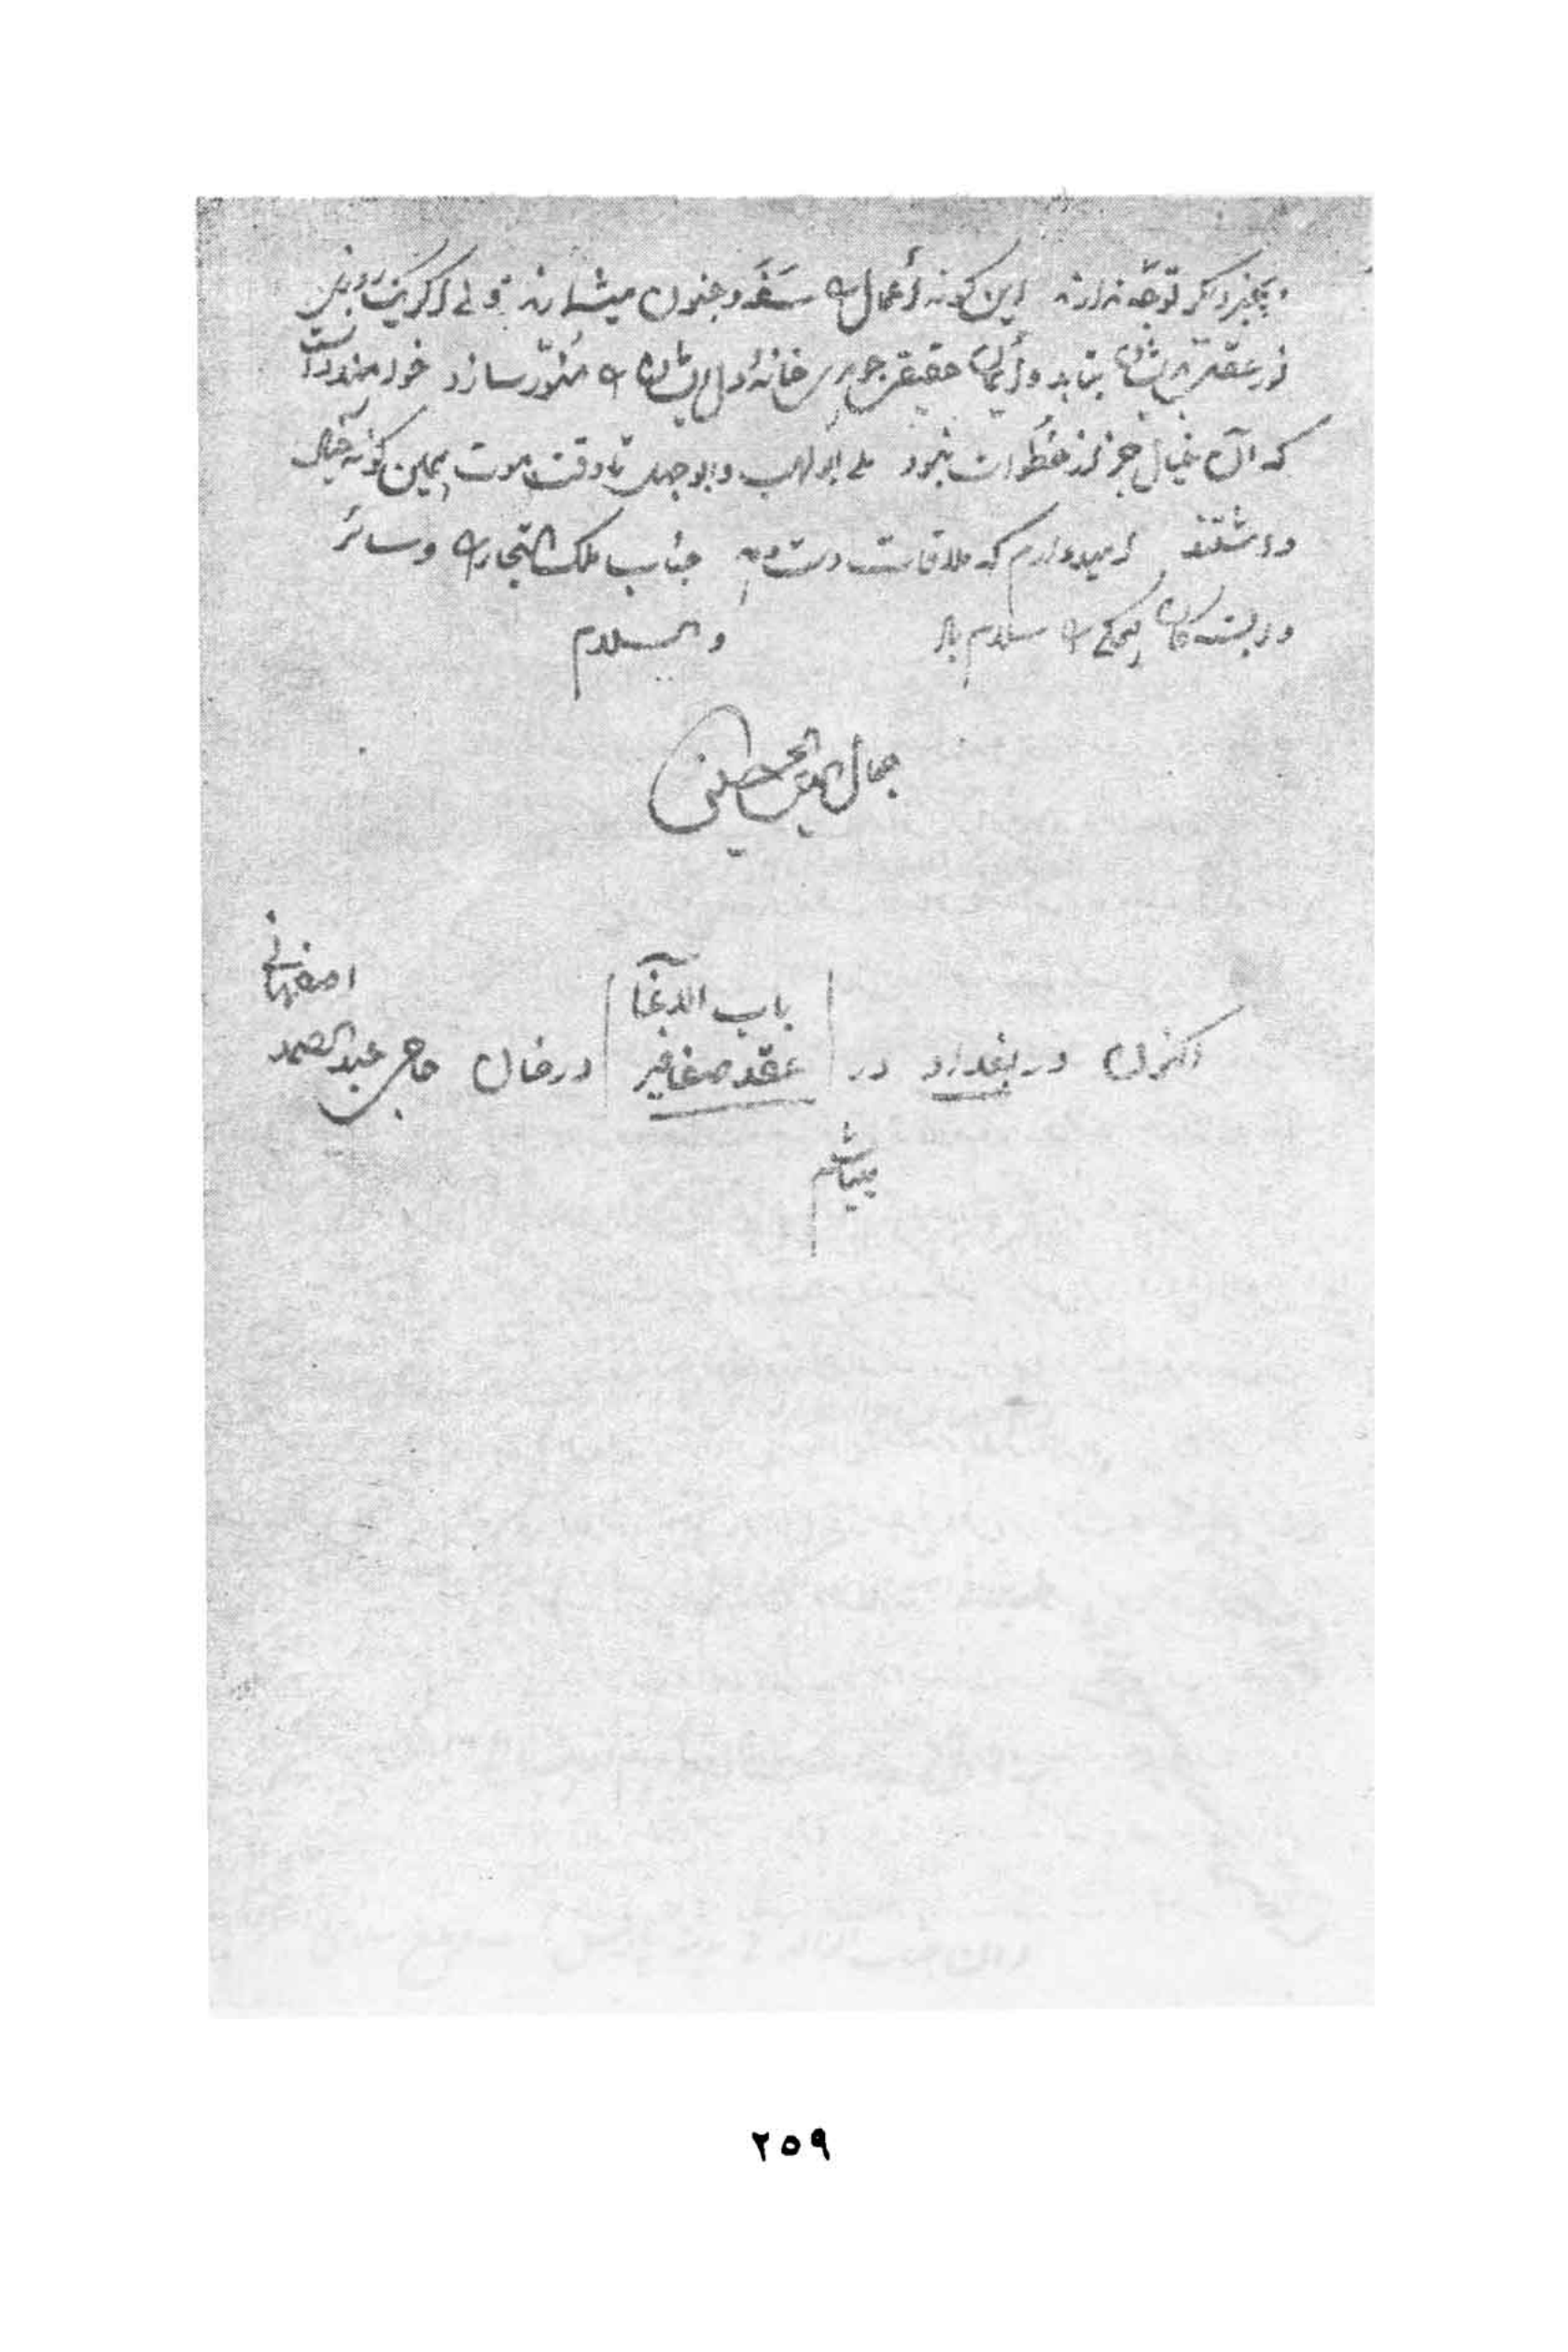 و بچیز دیگر توجه ندارند این گونه أعمال را سفه و جنون میشمارند ولی اگر یک روزی
نور عقل بر ایشان بتابد و أیمان حقیقی جوهری خانهٔ دل ایشان را منور سازد خواهند دانست
که آن خیال جز از خطورات نبود بلی ابولهب و ابوجهل تا وقت موت بهمین گونه خیال
داشتند امیدوارم که ملاقات دست دهد جناب ملک التجار را و سائر
وابستگان را همگی سلام باد والسلام
جمال الدین الحسینی
اکنون در بغداد در باب الآغا عقد صفافیر در خان حاجی عبدالصمد اصفهانی
میباشم
٢٥٩